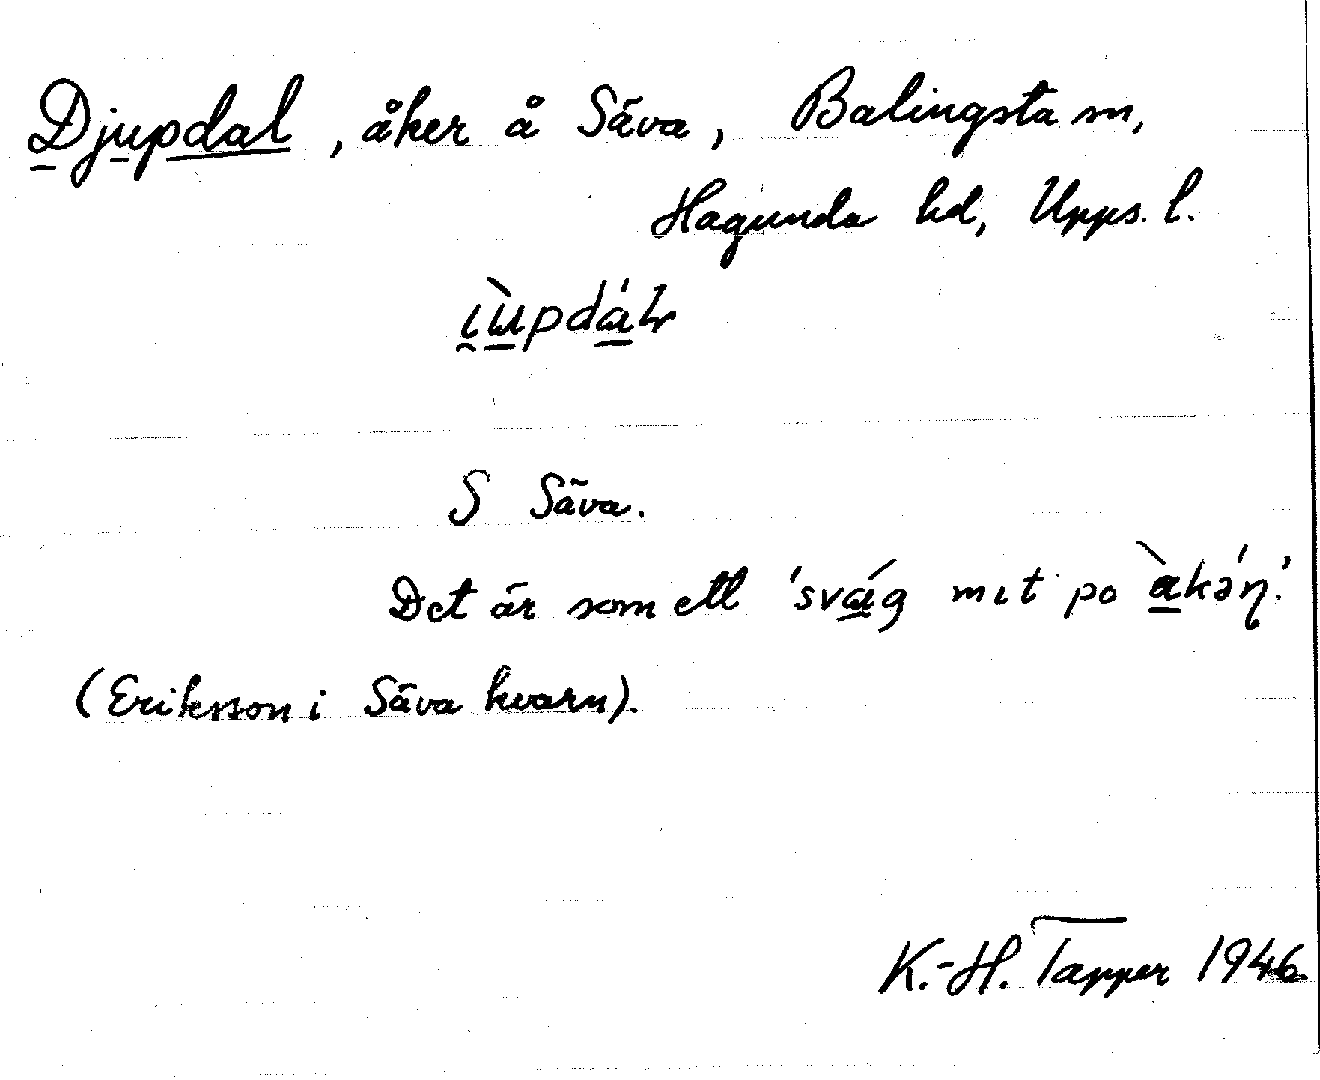 Djupdal, åker å Säva, Balingsta sn,
Hagunda hd, Upps. l.
S Säva.
Det är som ett 'svag mιt po akəη.'
(Eriksson i Säva kvarn).
K.-H. Tapper 1946